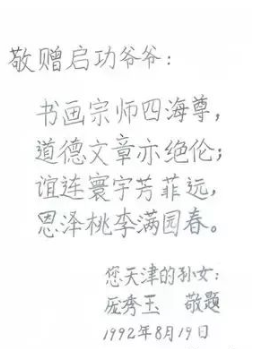 敬赠启功爷爷：
书画宗师四海尊，
道德文章亦绝伦；
谊连寰宇芳菲远，
恩泽桃李满园春。
您天津的孙女：
庞秀玉 敬题
1992年8月19日